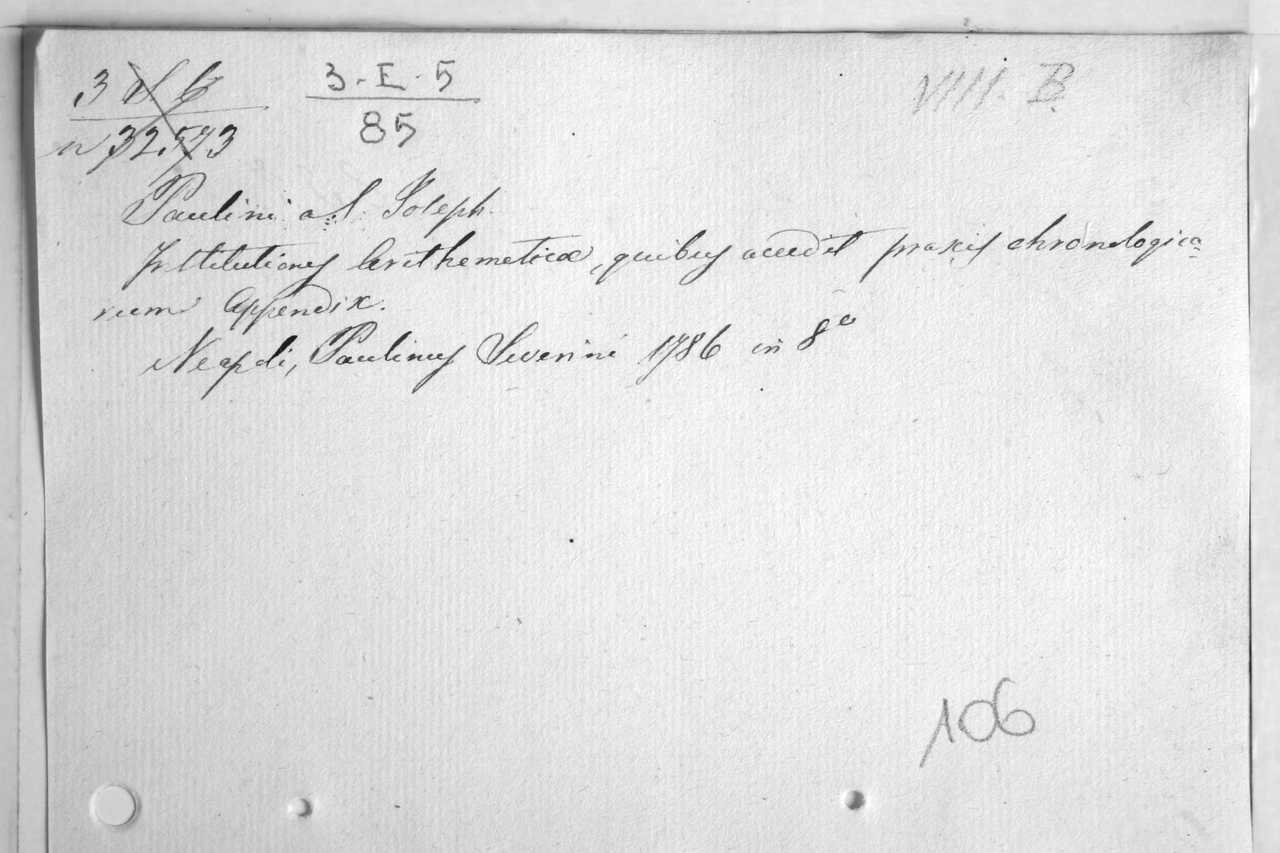 3 d b
3-E-5
VIII. B
n 32.573
85
Paulini a S. Joseph.
Institutiones Arithemeticæ, quibus accedit praxis chronologica-
rum Appendix.
Neapoli, Paulinus Severini 1786 in 8º
106